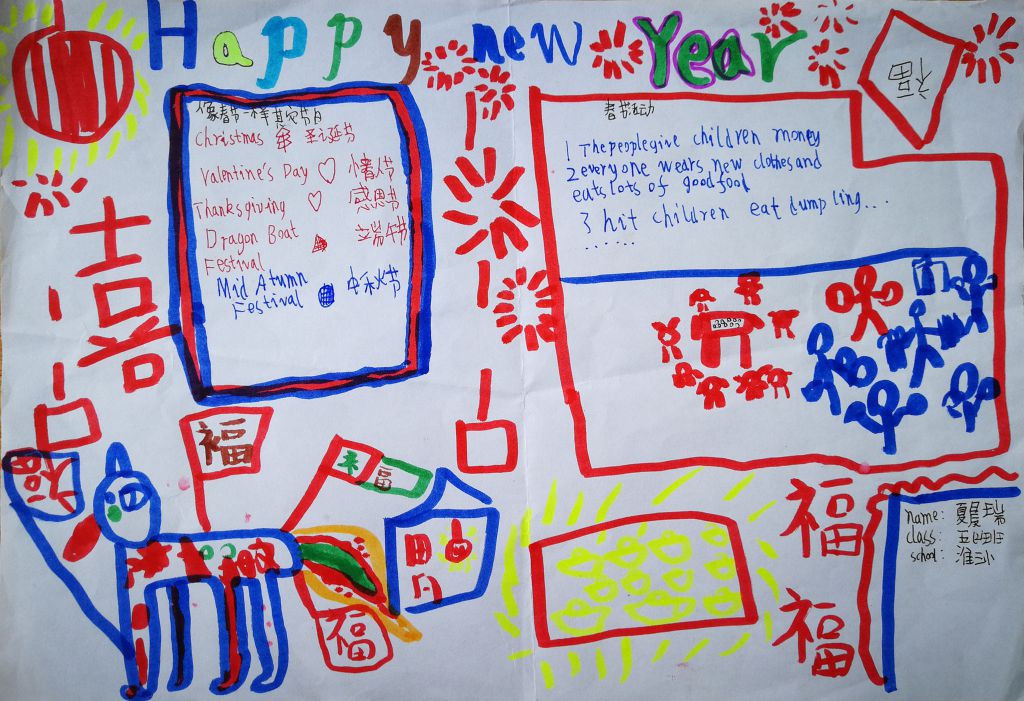 Happy new Year
像春节一样其它节日
Christmas 圣诞节
Valentine's Day 情人节
Thanksgiving 感恩节
Dragon Boat 端午节
Festival
Mid Atumn 中秋节
Festival
春节活动
1 The people give children money
2 everyone wears new clothes and
eats lots of good food
3 hit children eat dumpling...
......
喜
福
来
福
福
福
福
name: 夏
class: 五四班
school: 淮